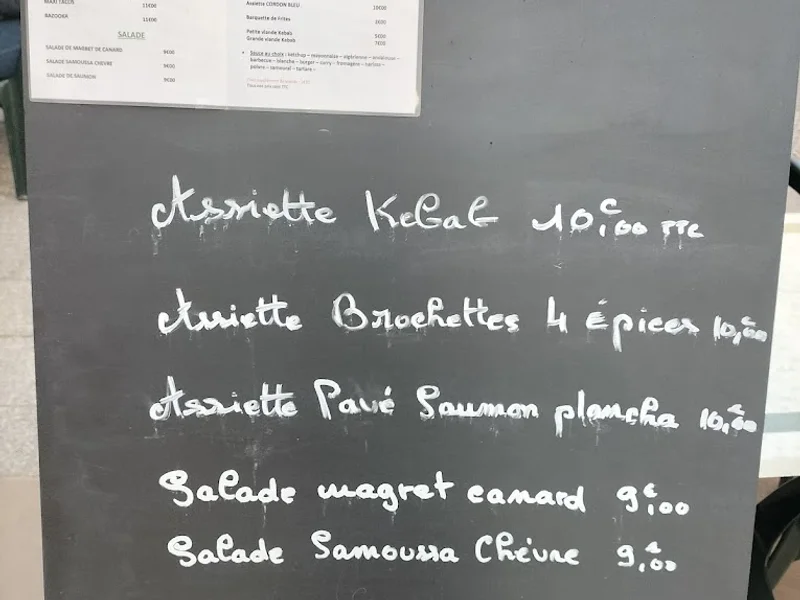 MAXI TACOS 11€00
BAZOOKA 11€00
SALADE
SALADE DE MAGRET DE CANARD 9€00
SALADE SAMOUSSA CHEVRE 9€00
SALADE DE SAUMON 9€00
Assiette CORDON BLEU 10€00
Barquette de Frites
Petite viande Kebab 5€00
Grande viande Kebab 7€00
Sauce au choix : ketchup – mayonnaise – algérienne – andalouse –
barbecue – blanche – burger – curry – fromagère – harissa –
poivre – samouraï – tartare –
Assiette Kebab 10€,00 TTC
Assiette Brochettes 4 épices 10,€00
Assiette Pavé Saumon plancha 10,€00
Salade magret canard 9€,00
Salade Samoussa Chèvre 9,€00